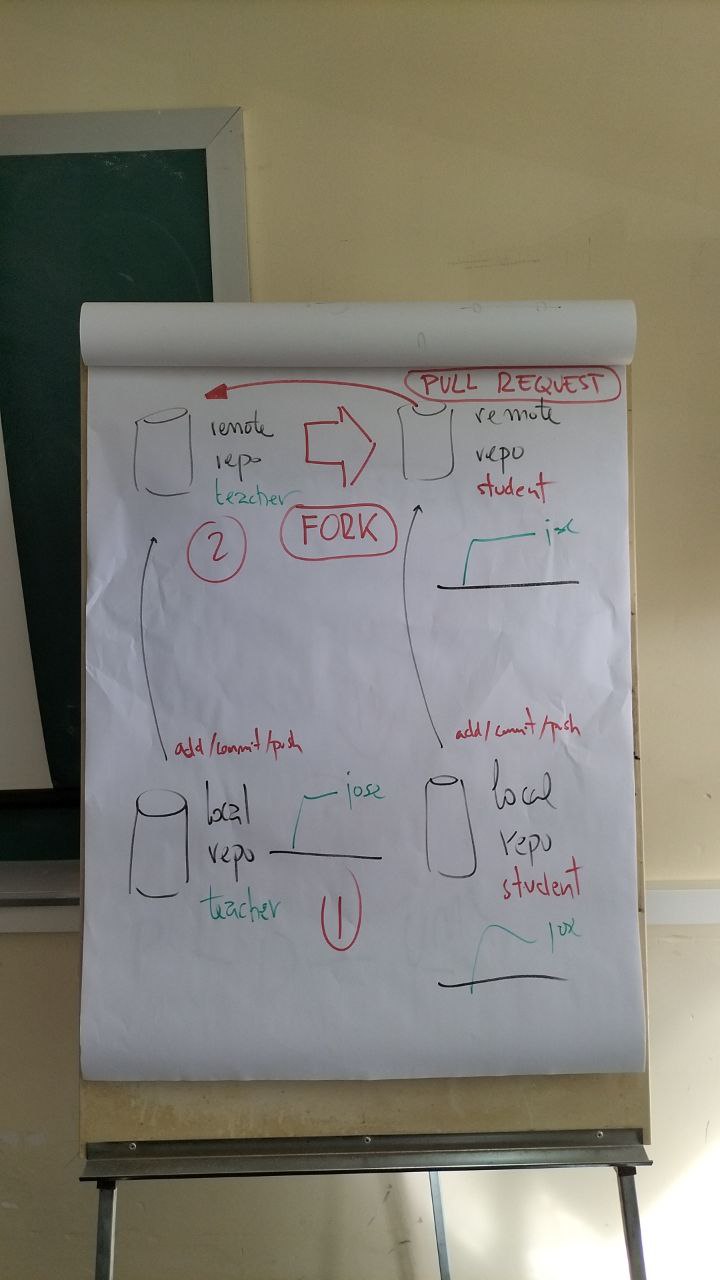 PULL REQUEST
remote
repo
teacher
remote
repo
student
FORK
2
add/commit/push
add/commit/push
local
repo
teacher
jose
1
local
repo
student